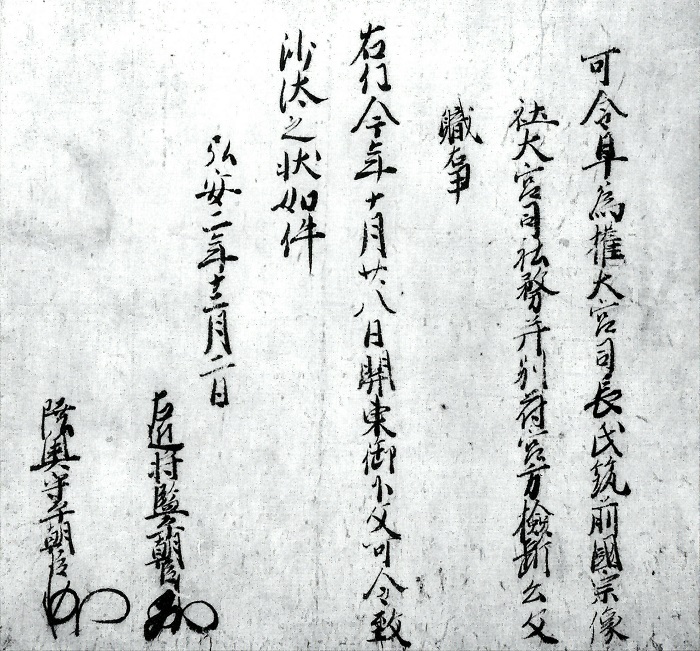 可令早為權大宮司長氏筑前國宗像
社大宮司社務并別符宮方檢断公文
職事
右任今年十月廿八日關東御下文可令致
沙汰之状如件
弘安二年十二月二日
左近将監平朝臣
陸奥守平朝臣